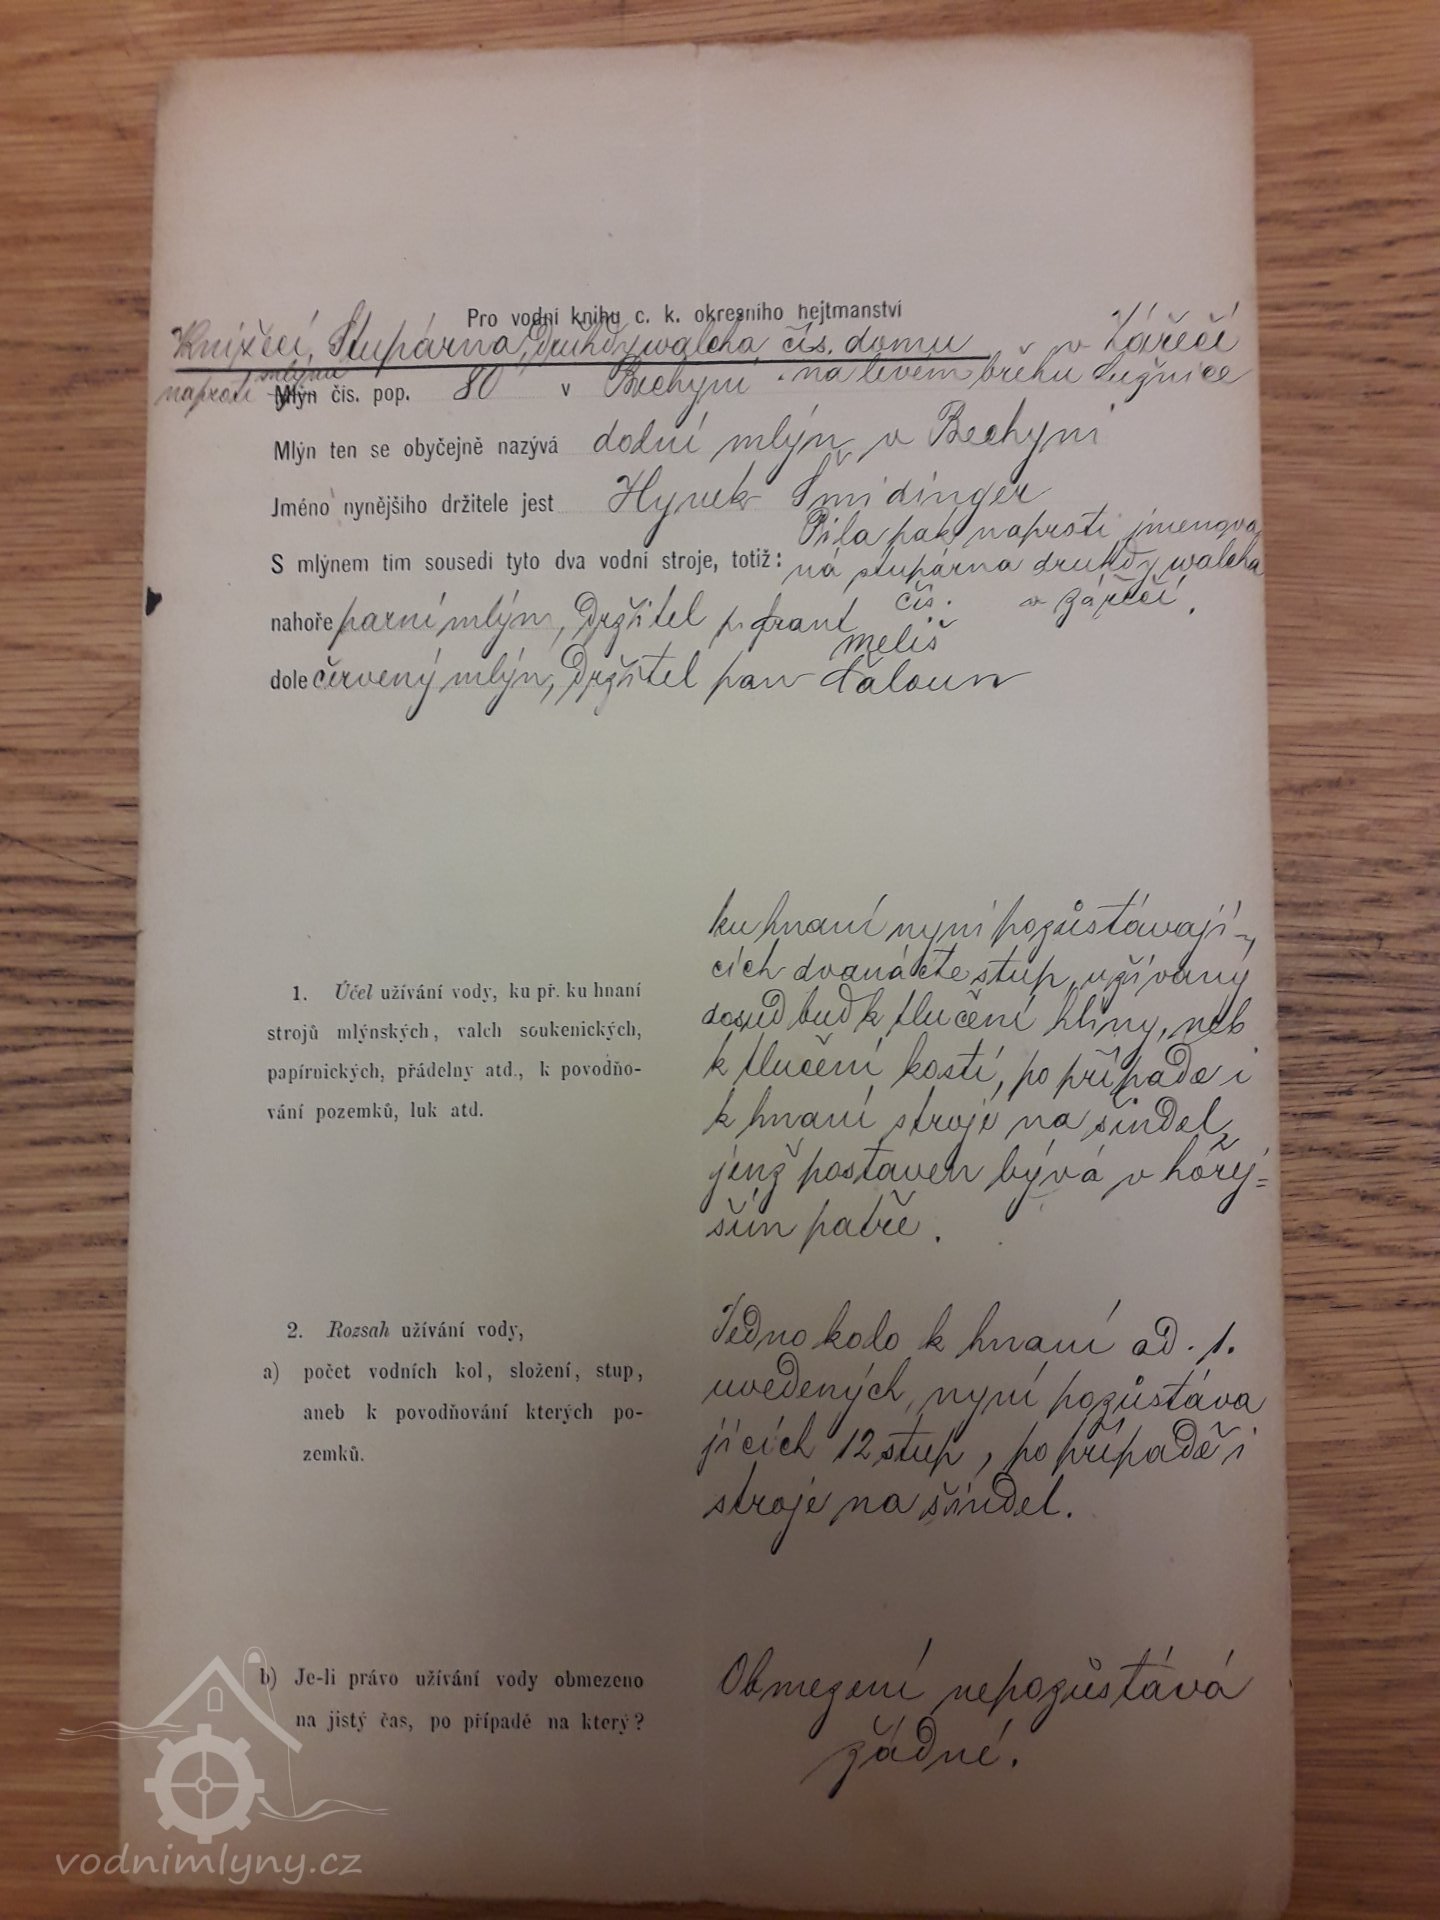 Pro vodní knihu c. k. okresního hejtmanství
Knížecí Stupárna, druhdy walcha čís. domu v Zářečí
naproti mlýnu Mlýn čís. pop. 80 v Bechyni na levém břehu Lužnice
Mlýn ten se obyčejně nazývá dolní mlýn v Bechyni
Jméno nynějšího držitele jest Hynek Šmidinger
Pila pak naproti jmenova
S mlýnem tím sousedí tyto dva vodní stroje, totiž: ná stupárna druhdy walcha
čís. v Zářečí.
nahoře parní mlýn, Držitel p. Frant
Meliš
dole červený mlýn, Držitel pan Čaloun
ku hnaní nyní pozůstávají-
cích dvanácte stup, užívaný
dosud buď k tlučení hlíny, neb
k tlučení kostí, po případě i
k hnaní stroje na šindel,
jenž postaven bývá v hořej=
ším patře.
1. Účel užívání vody, ku př. ku hnaní
strojů mlýnských, valch soukenických,
papírnických, přádelny atd., k povodňo-
vání pozemků, luk atd.
2. Rozsah užívání vody,
a) počet vodních kol, složení, stup,
aneb k povodňování kterých po-
zemků.
Jedno kolo k hnaní ad. 1.
uvedených, nyní pozůstáva
jících 12 stup, po případě i
stroje na šindel.
b) Je-li právo užívání vody obmezeno
na jistý čas, po případě na který?
Obmezení nepozůstává
žádné.
vodnimlyny.cz